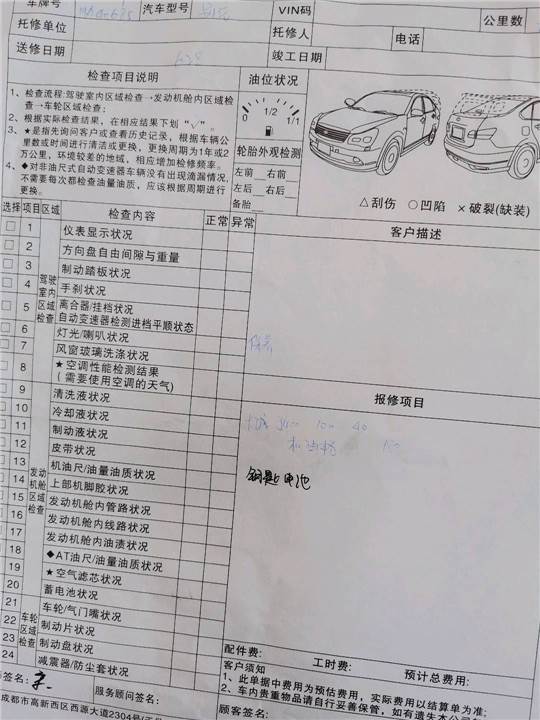 车牌号 汽车型号 VIN码 公里数
托修单位 托修人 电话
送修日期 竣工日期
检查项目说明
1、检查流程:驾驶室内区域检查→发动机舱内区域检
查→车轮区域检查;
2、根据实际检查结果,在相应结果下划“√”。
3、★是指先询问客户或查看历史记录,根据车辆公
里数或时间进行清洁或更换,更换周期为1年或2
万公里,环境较差的地域,相应增加检修频率。
4、◆对非油尺式自动变速器车辆没有出现滴漏情况,
不需要每次都检查油量油质,应该根据周期进行
更换。
油位状况
0 1/2 1/1
轮胎外观检测
左前 右前
左后 右后
备胎
△刮伤 ○凹陷 ×破裂(缺装)
选择 项目 区域 检查内容 正常 异常
驾驶室内区域检查
1 仪表显示状况
2 方向盘自由间隙与重量
3 制动踏板状况
4 手刹状况
5 离合器/挂档状况
自动变速器检测进档平顺状态
6 灯光/喇叭状况
7 风窗玻璃洗涤状况
8 ★空调性能检测结果
(需要使用空调的天气)
发动机舱区域检查
9 清洗液状况
10 冷却液状况
11 制动液状况
12 皮带状况
13 机油尺/油量油质状况
14 上部机脚胶状况
15 发动机舱内管路状况
16 发动机舱内线路状况
17 发动机舱内油渍状况
18 ◆AT油尺/油量油质状况
19 ★空气滤芯状况
20 蓄电池状况
车轮区域检查
21 车轮/气门嘴状况
22 制动片状况
23 制动盘状况
24 减震器/防尘套状况
客户描述
保养
报修项目
100 40
钥匙电池
配件费: 工时费: 预计总费用:
客户须知
1、此单据中费用为预估费用,实际费用以结算单为准;
2、车内贵重物品请自行妥善保管,如有遗失本公司
签名: 服务顾问签名: 顾客签名:
成都市高新西区西源大道2304号